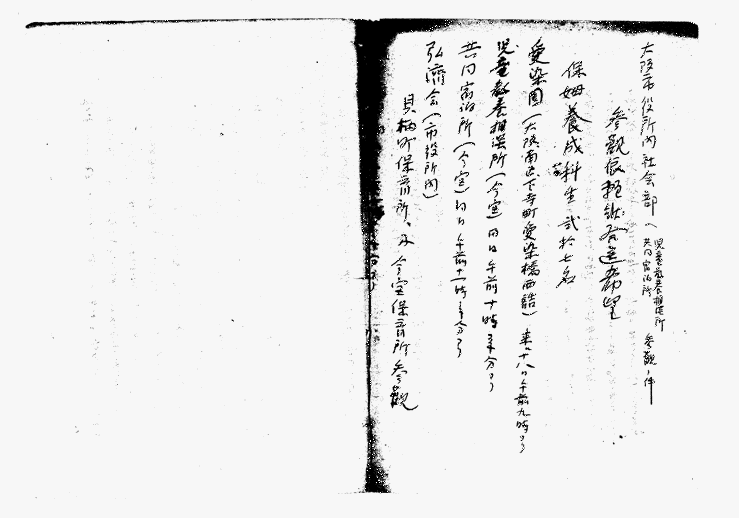 大阪市役所内社会部ヘ 児童教養相談所 共同宿泊所 参観ノ件
参観依頼状発送希望
保姆養成科生 弐拾七名
愛染園(大阪南区下寺町愛染橋西詰) 来ル十八日午前九時ヨリ
児童教養相談所(今宮) 同日 午前十時半分ヨリ
共同宿泊所(今宮) 同日 午前十一時半分ヨリ
弘済会(市役所内)
貝柄町保育所、及 今宮保育所参観